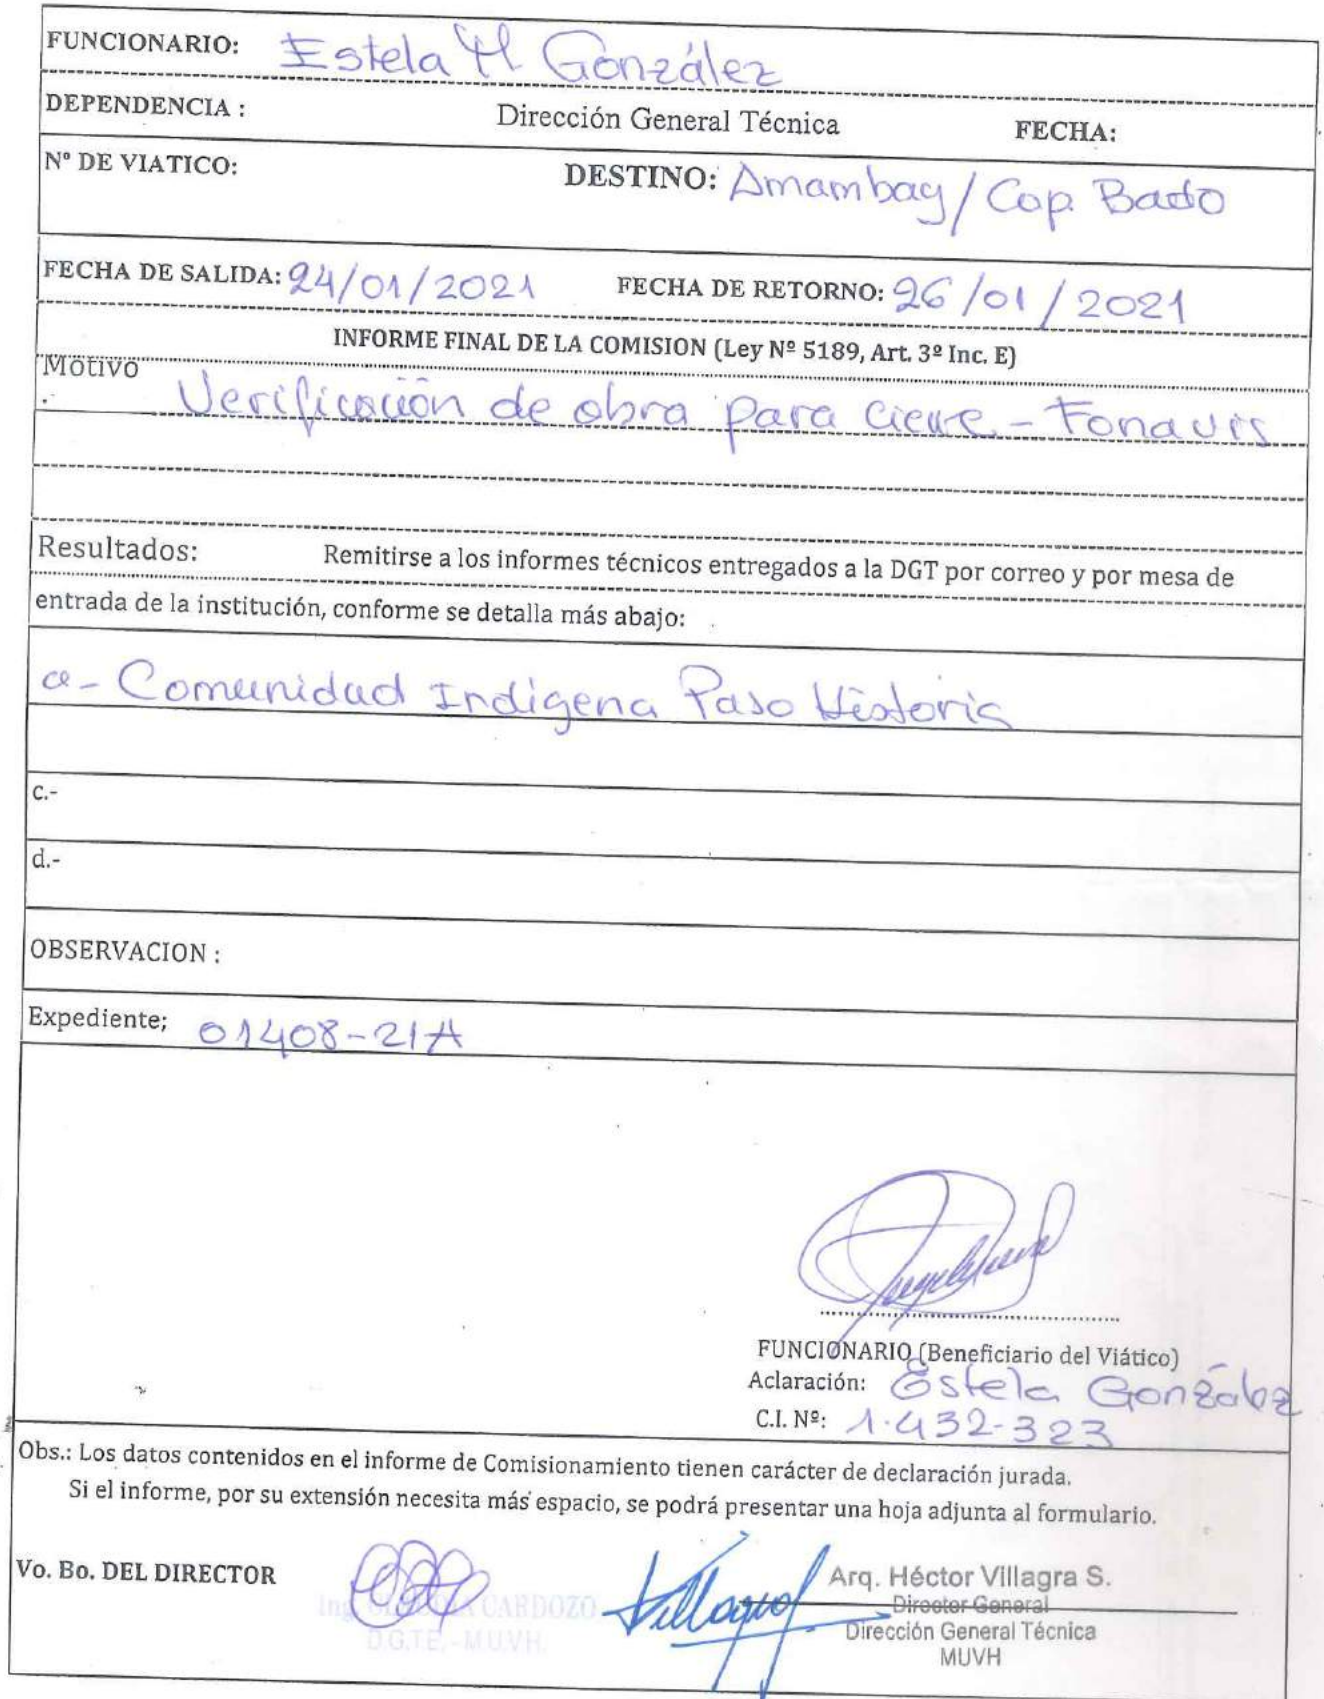 FUNCIONARIO: Estela M González
DEPENDENCIA : Dirección General Técnica FECHA:
Nº DE VIATICO: DESTINO: Amambay / Cap. Bado
FECHA DE SALIDA: 24/01/2021 FECHA DE RETORNO: 26/01/2021
INFORME FINAL DE LA COMISION (Ley Nº 5189, Art. 3º Inc. E)
Motivo
Verificación de obra para cierre - Fonavis
Resultados: Remitirse a los informes técnicos entregados a la DGT por correo y por mesa de
entrada de la institución, conforme se detalla más abajo:
a- Comunidad Indígena Paso Historia
c.-
d.-
OBSERVACION :
Expediente; 01408-21A
FUNCIONARIO (Beneficiario del Viático)
Aclaración: Estela González
C.I. Nº: 1.432.323
Obs.: Los datos contenidos en el informe de Comisionamiento tienen carácter de declaración jurada.
Si el informe, por su extensión necesita más espacio, se podrá presentar una hoja adjunta al formulario.
Vo. Bo. DEL DIRECTOR
Ing. CLAUDIA CARDOZO
D.G.T.E.-MUVH.
Arq. Héctor Villagra S.
Director General
Dirección General Técnica
MUVH